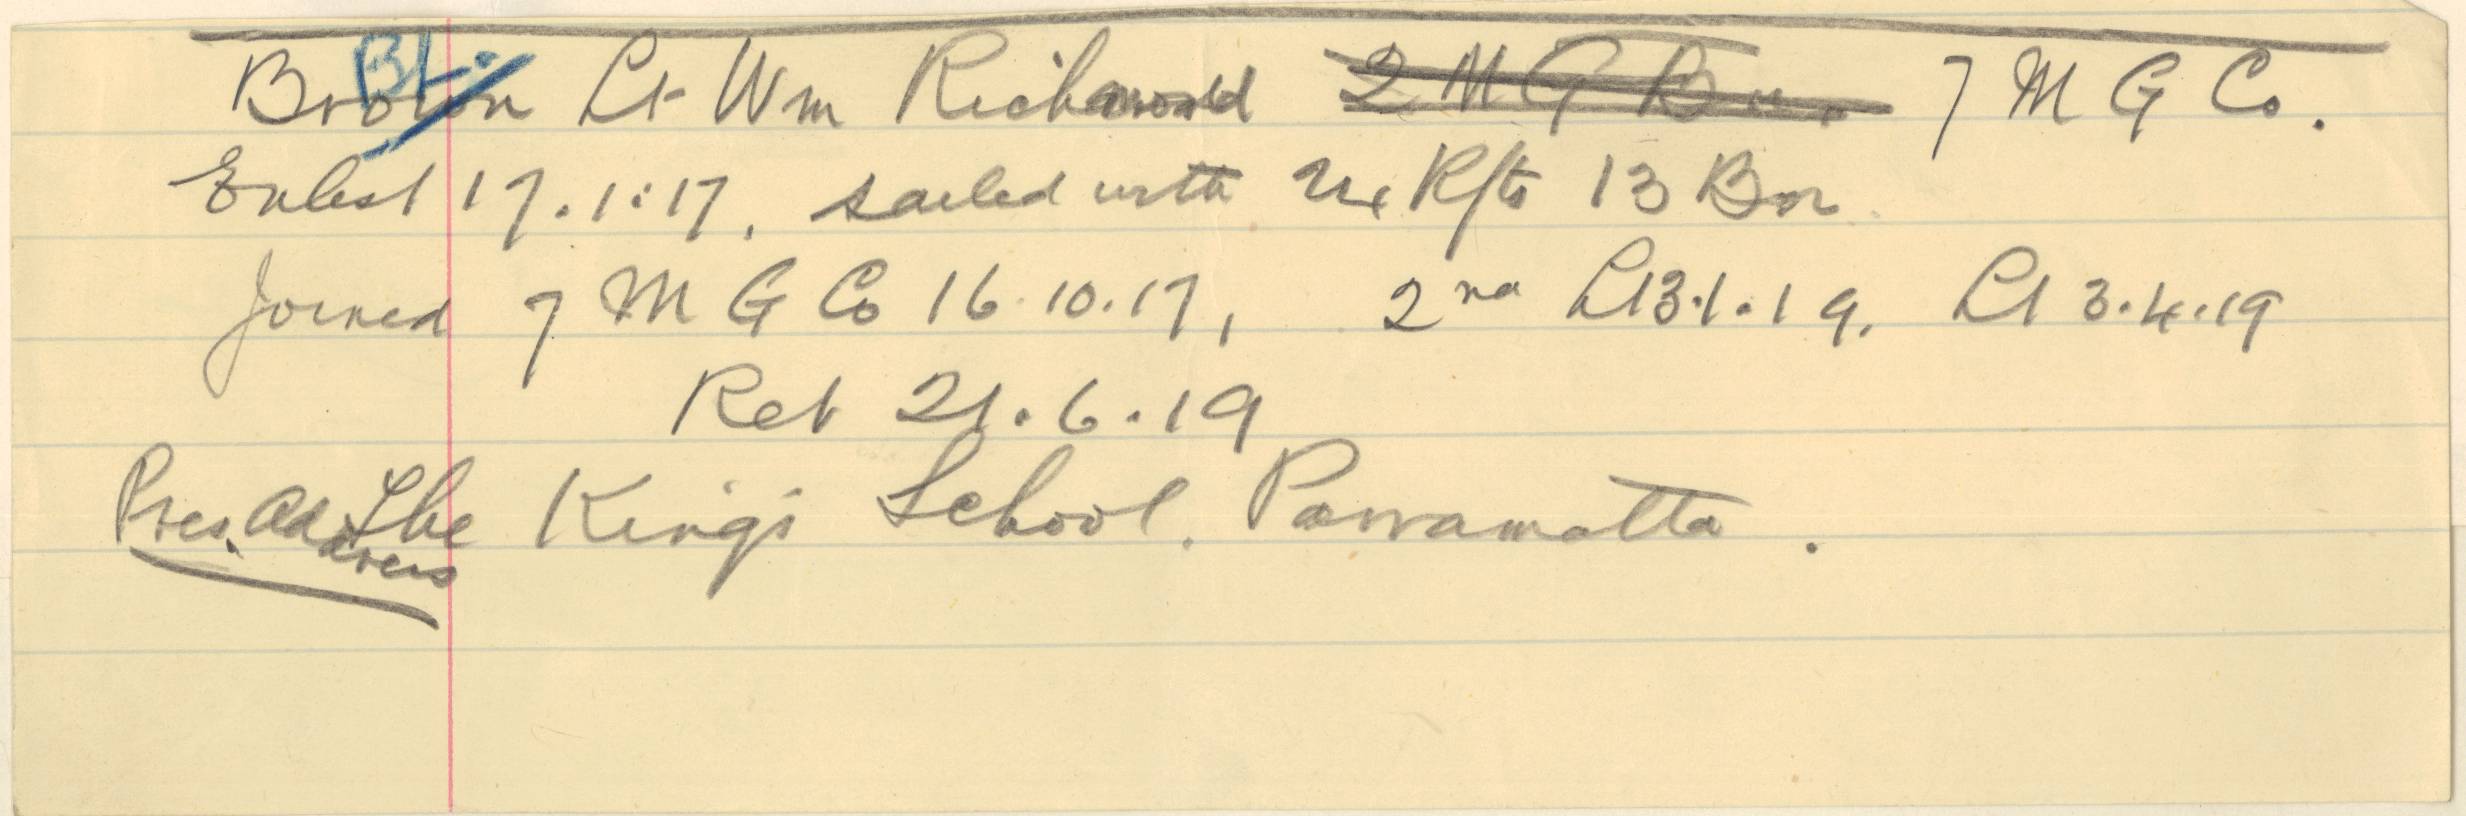 BL.
Brown Lt Wm Richard 2 M G Bn. 7 M G Co.
Enlist 17.1.17, sailed with Rfts 13 Bn.
Joined 7 M G Co 16.10.17, 2nd Lt 3.1.19. Lt 3.4.19
Ret 21.6.19
Pres. Address The King's School. Parramatta.